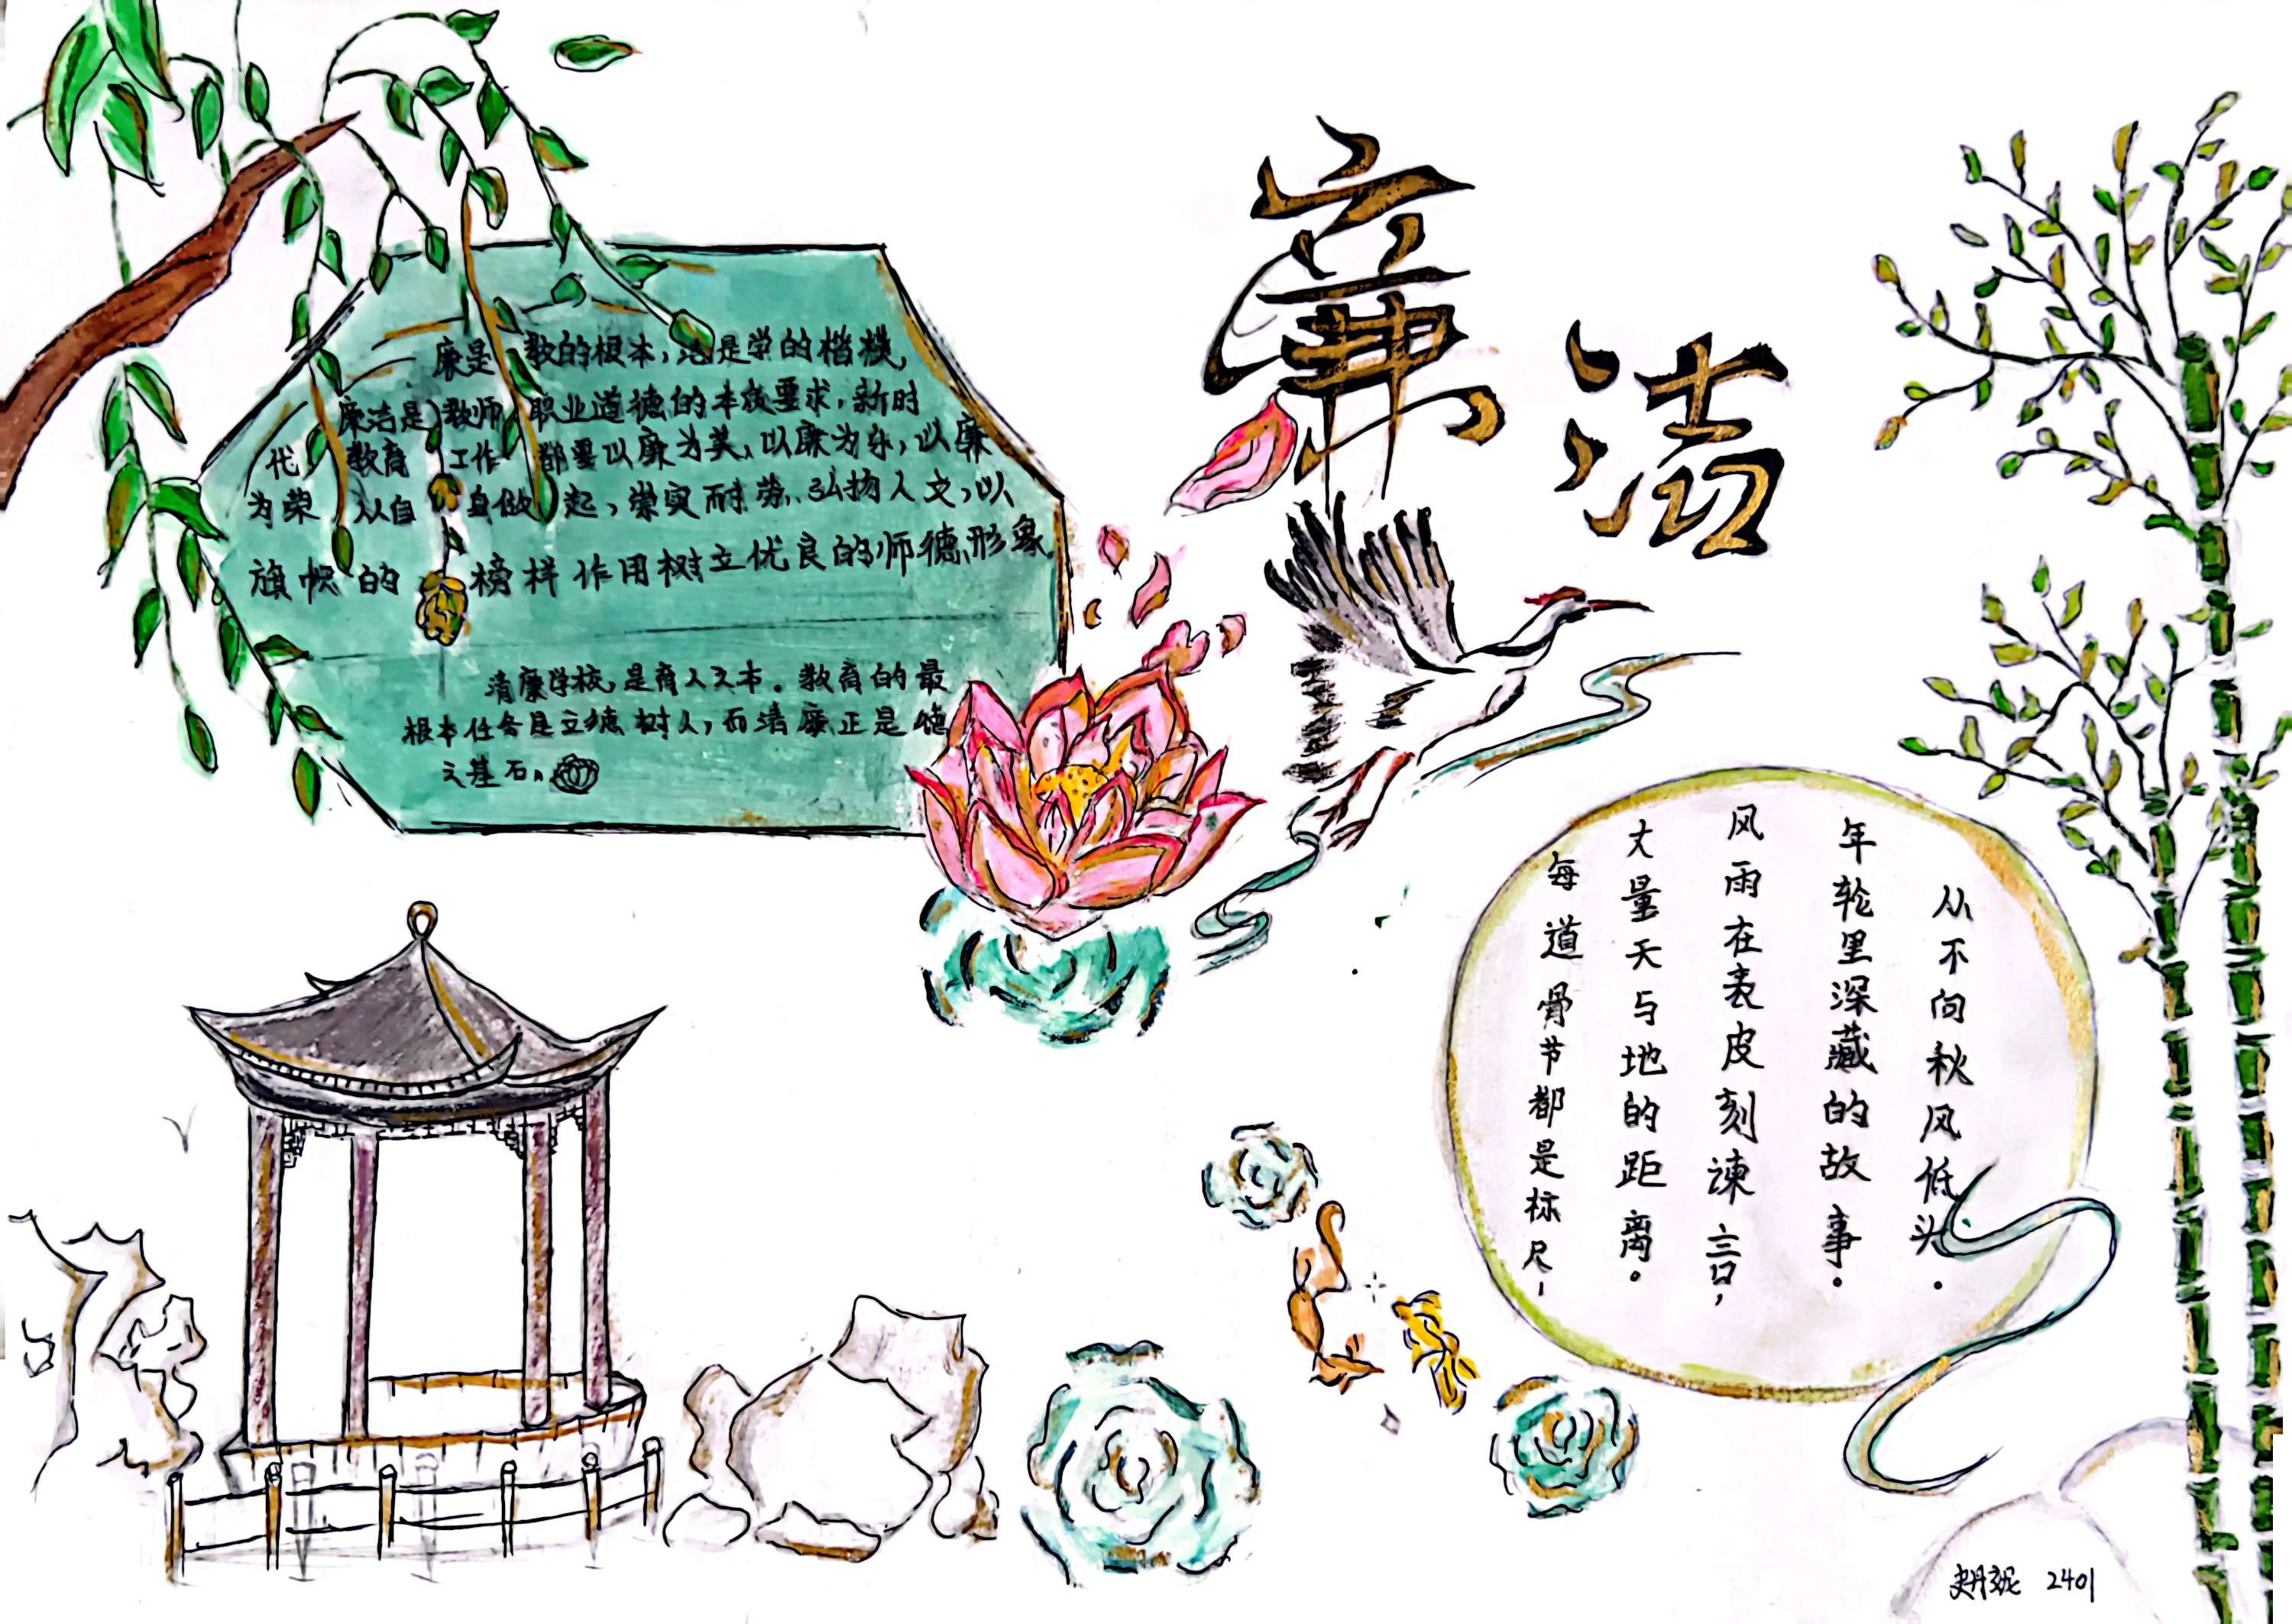 廉洁
廉是教的根本，洁是学的楷模，
廉洁是教师职业道德的本质要求，新时
代教育工作都要以廉为美，以廉为乐，以廉
为荣从自身做起，崇实耐劳、弘扬人文，以
旗帜的榜样作用树立优良的师德形象
清廉学校，是育人之本。教育的最
根本任务是立德树人，而清廉正是德
之基石。
从不向秋风低头。
年轮里深藏的故事。
风雨在表皮刻谏言，
丈量天与地的距离。
每道骨节都是标尺-
2401